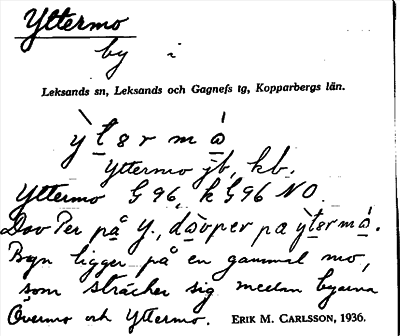 Yttermo
by i
Leksands sn, Leksands och Gagnefs tg, Kopparbergs län.
ỳt8r m å̀
Yttermo jb, kb.
Yttermo G 96, k G 96 NO
Dav Per på Y., dàvper pa ỳt8rmå̀.
Byn ligger på en gammal mo,
som sträcker sig mellan byarna
Övermo och Yttermo. ERIK M. CARLSSON, 1936.